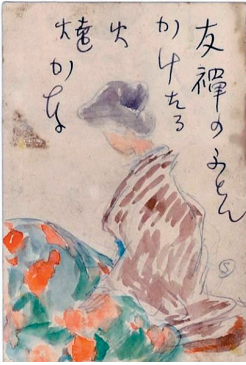 友禅のふとん
かけたる
火
燵かな